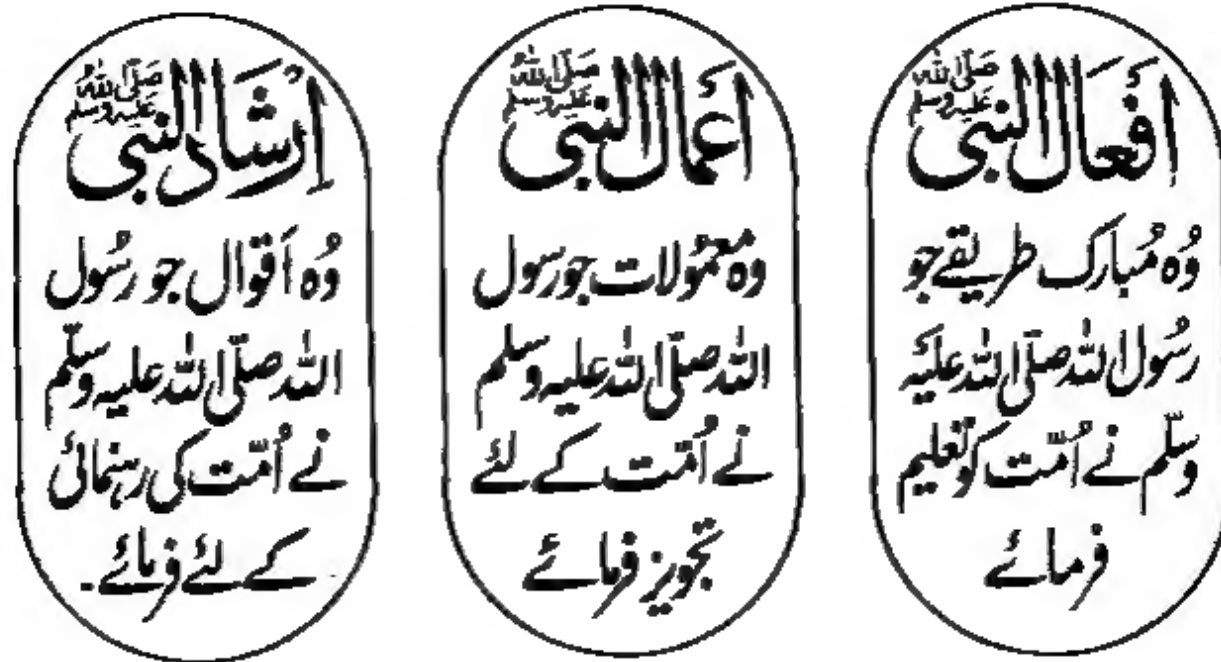 أَفْعَالُ النبی صَلَّى اللّٰهُ عَلَيْهِ وَسَلَّم
وُہ مُبارک طریقے جو
رسُول اللہ صلّی اللہ علیَہ
وسلّم نے اُمّت کو تعلیم
فرمائے
أَعْمَالُ النبی صَلَّى اللّٰهُ عَلَيْهِ وَسَلَّم
وہ معمُولات جو رسول
اللہ صلّی اللہ علیہ وسلم
نے اُمّت کے لئے
تجویز فرمائے
اِرْشَادُ النبی صَلَّى اللّٰهُ عَلَيْهِ وَسَلَّم
وُہ اَقوال جو رسُول
اللہ صلّی اللہ علیہ وسلّم
نے اُمّت کی رہنمائی
کے لئے فرمائے۔